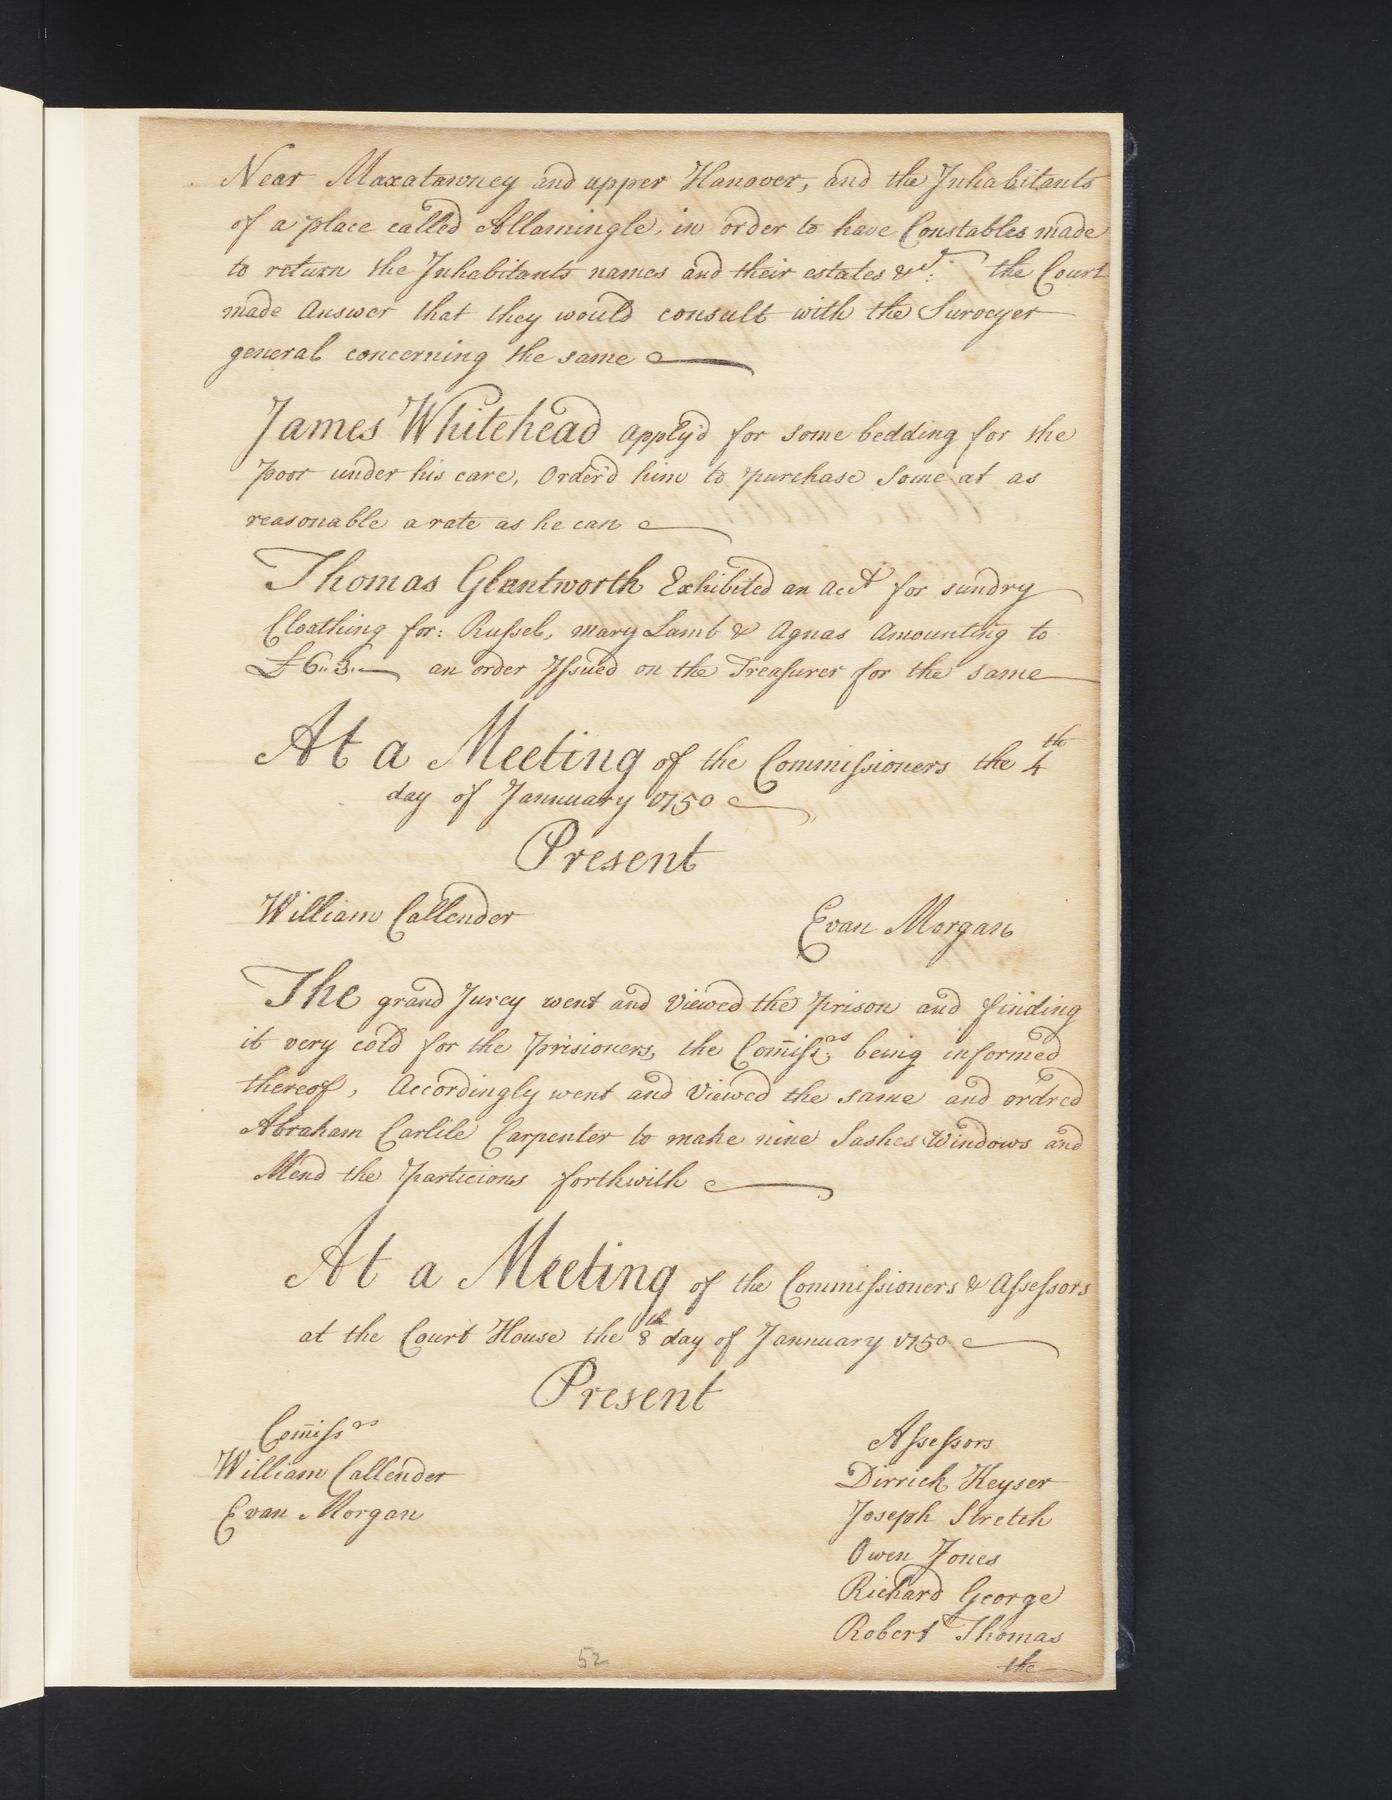 Near Maxatawney and upper Hanover, and the Inhabitants
of a place called Allamingle, in order to have Constables made
to return the Inhabitants names and their estates &c: the Court
made Answer that they would consult with the Surveyer
general concerning the same
James Whitehead apply'd for some bedding for the
poor under his care, Order'd him to purchase Some at as
reasonable a rate as he can
Thomas Glentworth Exhibited an acct for sundry
Cloathing for: Russel, mary Lamb & Agnas Amounting to
£6..3..— an order Issued on the Treasurer for the same
At a Meeting of the Commissioners the 4th
day of Jannuary 1750
Present
William Callender Evan Morgan
The grand Jurey went and viewed the prison and finding
it very cold for the prisioners, the Com̄issrs being informed
thereof, Accordingly went and Viewed the same and ordred
Abraham Carlile Carpenter to make nine Sashes Windows and
Mend the particions forthwith
At a Meeting of the Commissioners & Assessors
at the Court House the 8th day of Jannuary 1750
Present
Com̄issrs
William Callender
Evan Morgan
Assessors
Dirrick Keyser
Joseph Stretch
Owen Jones
Richard George
Robert Thomas
the
52